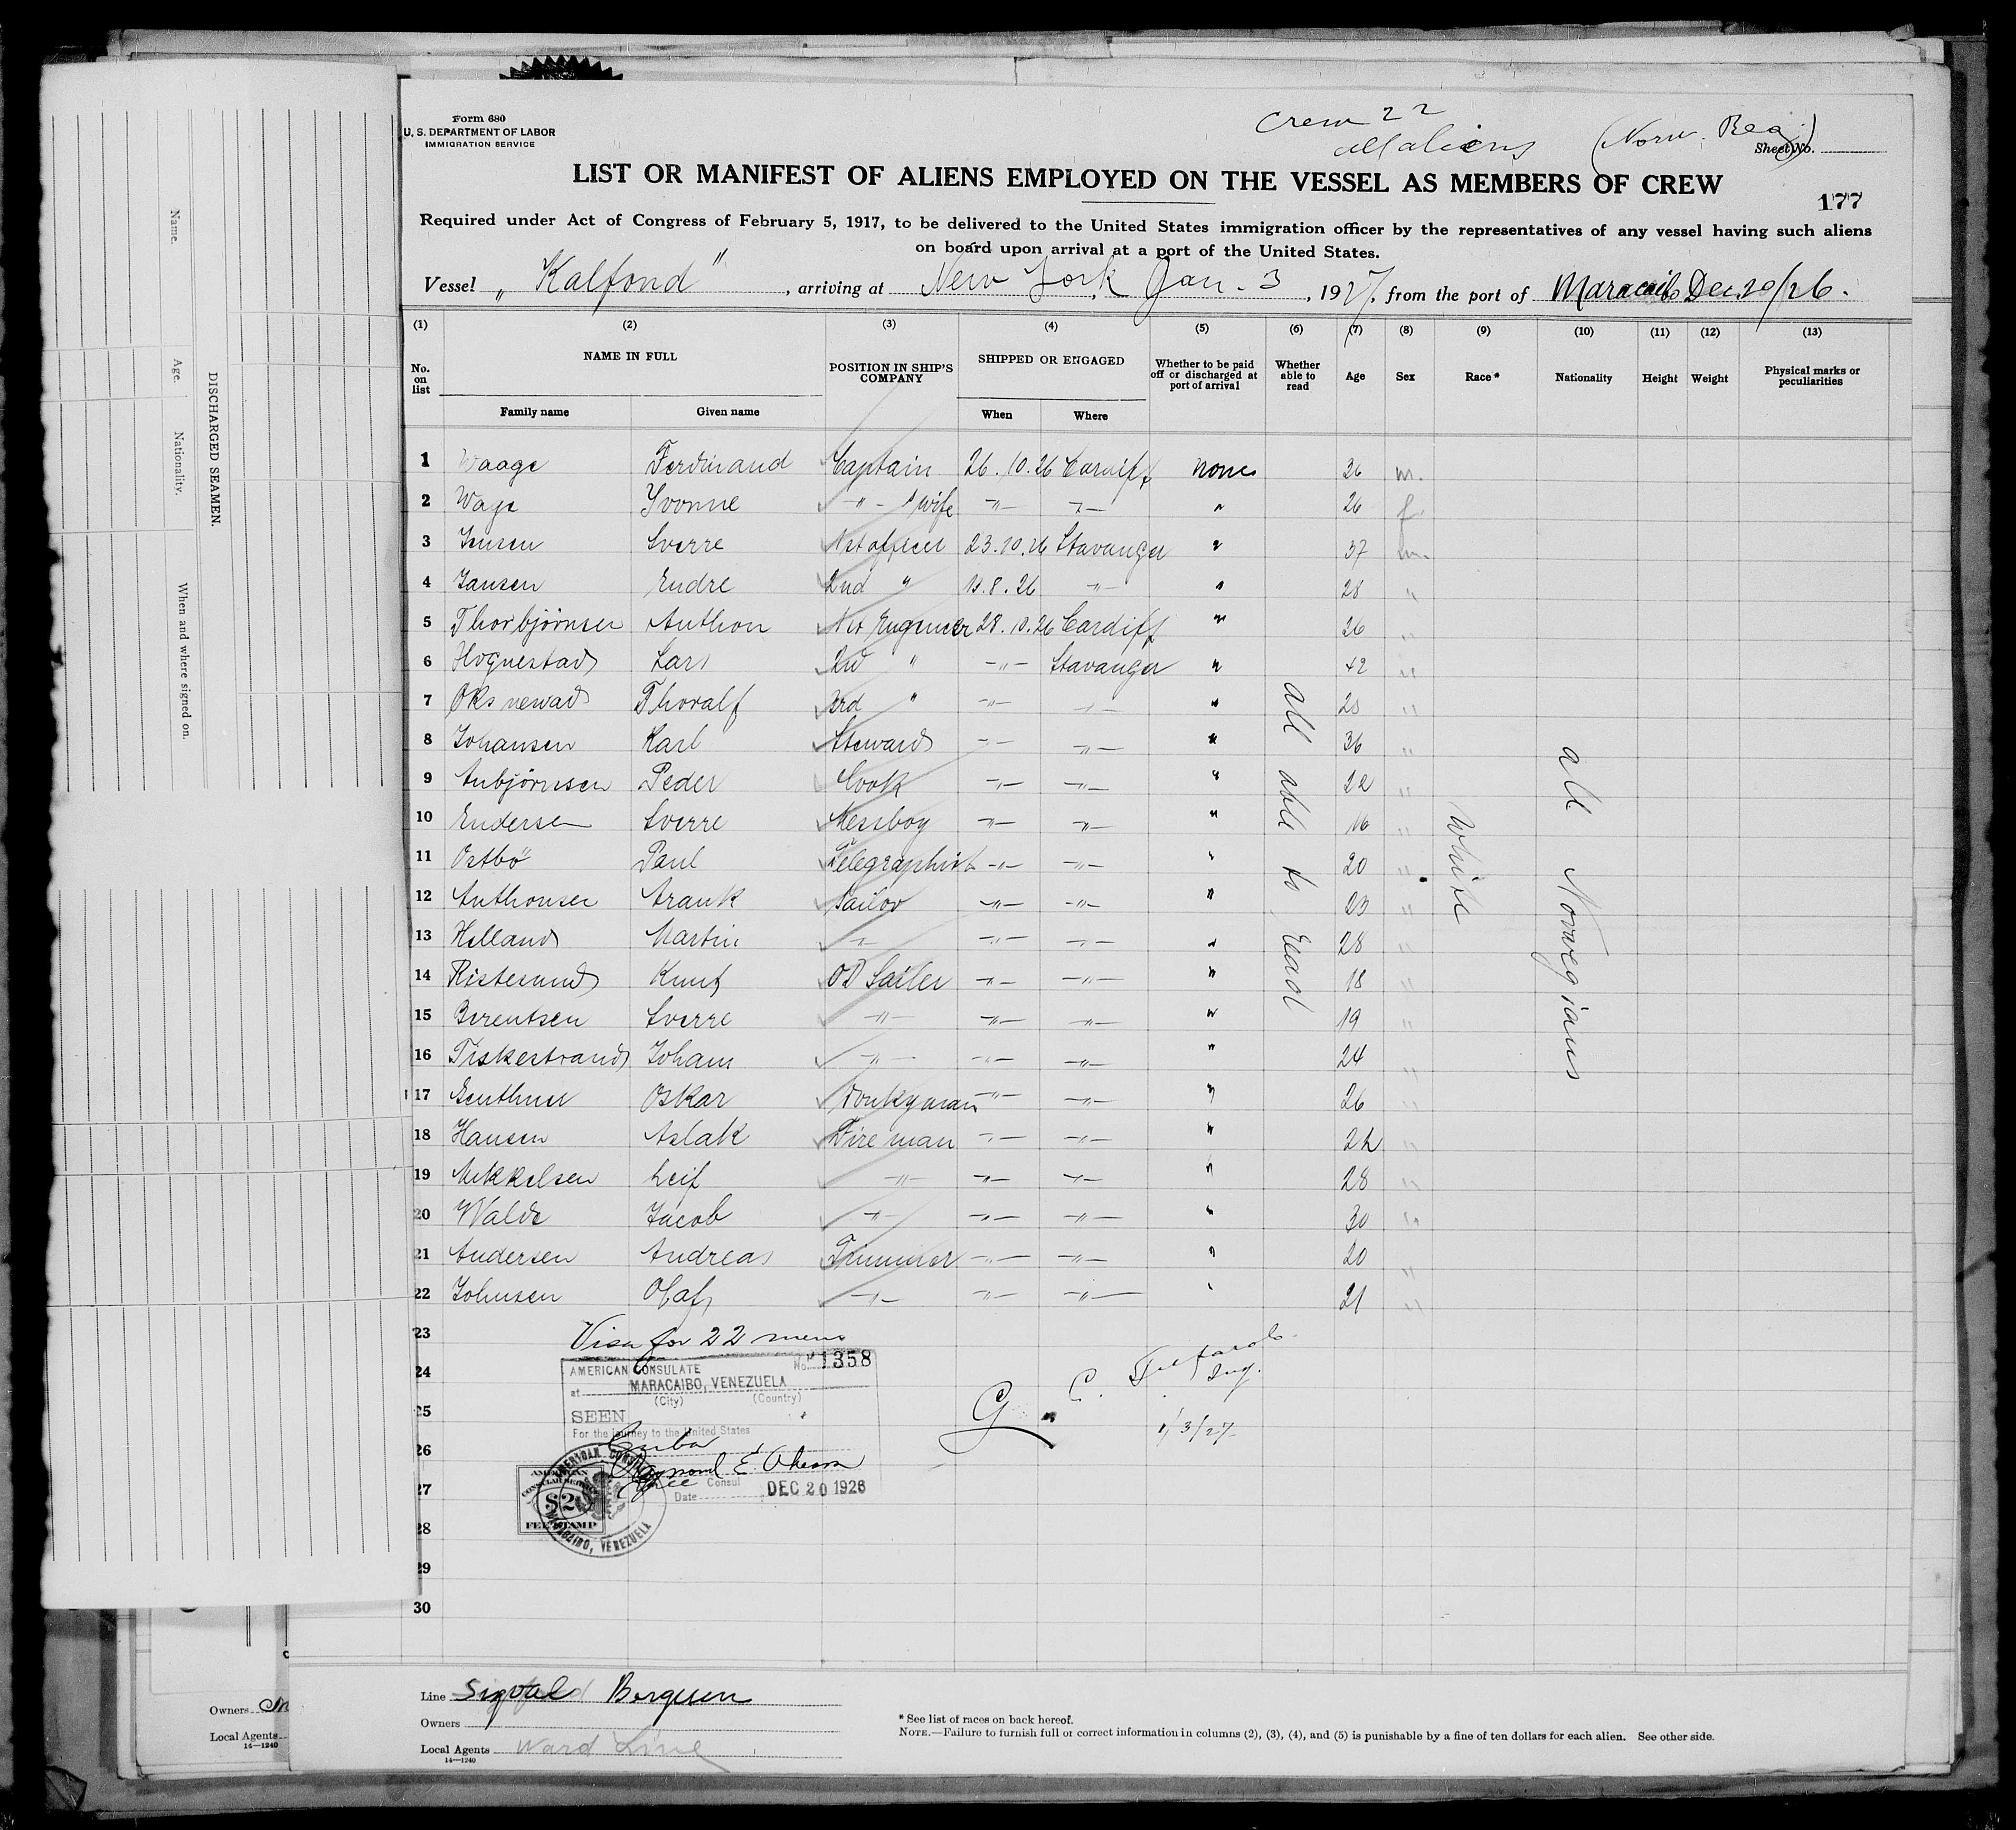 Form 680
U. S. DEPARTMENT OF LABOR
IMMIGRATION SERVICE
Crew 22
all aliens (Norw. Reg.)
Sheet No.
LIST OR MANIFEST OF ALIENS EMPLOYED ON THE VESSEL AS MEMBERS OF CREW
177
Required under Act of Congress of February 5, 1917, to be delivered to the United States immigration officer by the representatives of any vessel having such aliens
on board upon arrival at a port of the United States.
Vessel „Kalfond", arriving at New York, Jan. 3, 1927, from the port of Maracaibo Dec 20/26.
(1) (2) (3) (4) (5) (6) (7) (8) (9) (10) (11) (12) (13)
No. on list NAME IN FULL POSITION IN SHIP'S COMPANY SHIPPED OR ENGAGED Whether to be paid off or discharged at port of arrival Whether able to read Age Sex Race* Nationality Height Weight Physical marks or peculiarities
Family name Given name When Where
1 Waage Ferdinand Captain 26.10.26 Cardiff none 36 m.
2 Wage Yvonne -"- s wife -"- -"- " 26 f.
3 Jensen Sverre 1st officer 23.10.26 Stavanger " 37 m.
4 Jansen Endre 2nd " 11.8.26 -"- " 28 "
5 Thorbjørnsen Anthon 1st Engineer 28.10.26 Cardiff " 26 "
6 Hognestad Lars 2nd " -"- Stavanger " 42 "
7 Oksnevad Thoralf 3rd " -"- -"- " "
8 Johansen Karl Steward -"- -"- " 36 "
9 Anbjørnsen Peder Cook -"- -"- " 22 "
10 Endersen Sverre Messboy -"- -"- " 16 "
11 Ostbö Paul Telegraphist -"- -"- " 20 "
12 Anthonsen Frank Sailor -"- -"- " 23 "
13 Helland Martin -"- -"- -"- " 28 "
14 Knut OD Sailer -"- -"- " 18 "
15 Berentsen Sverre -"- -"- -"- " 19 "
16 Fiskestrand Johann -"- -"- -"- " 24 "
17 Oskar Donkyman -"- -"- " 26 "
18 Hansen Aslak Fireman -"- -"- " 22 "
19 Mikkelsen Leif -"- -"- -"- " 28 "
20 Walde Jacob -"- -"- -"- " 30 "
21 Andersen Andreas Trimmer -"- -"- " 20 "
22 Johnsen Olaf -"- -"- -"- " 21 "
all able to read
White
all Norwegians
23
24
25
26
27
28
29
30
Visa for 22 mens
AMERICAN CONSULATE No. 1358
at MARACAIBO, VENEZUELA
(City) (Country)
SEEN
For the journey to the United States
Consul
Date DEC 20 1926
AMERICAN
CONSULAR SERVICE
$2
FEE STAMP
AMERICAN CONSULATE
MARACAIBO, VENEZUELA
G. C.
1/3/27
Line Sigval Bergesen
Owners
Local Agents Ward Line
14—1240
* See list of races on back hereof.
NOTE.—Failure to furnish full or correct information in columns (2), (3), (4), and (5) is punishable by a fine of ten dollars for each alien. See other side.
DISCHARGED SEAMEN.
Name.
Age.
Nationality.
When and where signed on.
Owners
Local Agents
14—1240